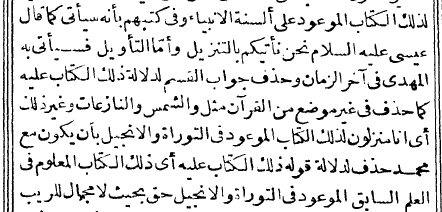 لذلك الكتاب الموعود على ألسنة الانبياء وفى كتبهم بأنه سيأتى كما قال
عيسى عليه السلام نحن نأتيكم بالتنزيل وأما التأويل فسيأتى به
المهدى فى آخر الزمان وحذف جواب القسم لدلالة ذلك الكتاب عليه
كما حذف فى غير موضع من القرآن مثل والشمس والنازعات وغير ذلك
أى انا منزلون لذلك الكتاب الموعود فى التوراة والانجيل بأن يكون مع
محمد حذف لدلالة قوله ذلك الكتاب عليه أى ذلك الكتاب المعلوم فى
العلم السابق الموعود فى التوراة والانجيل حق بحيث لا مجال للريب